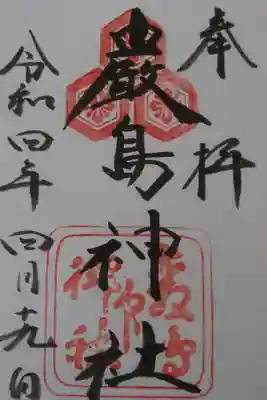 奉拝
厳島神社
令和四年四月十九日